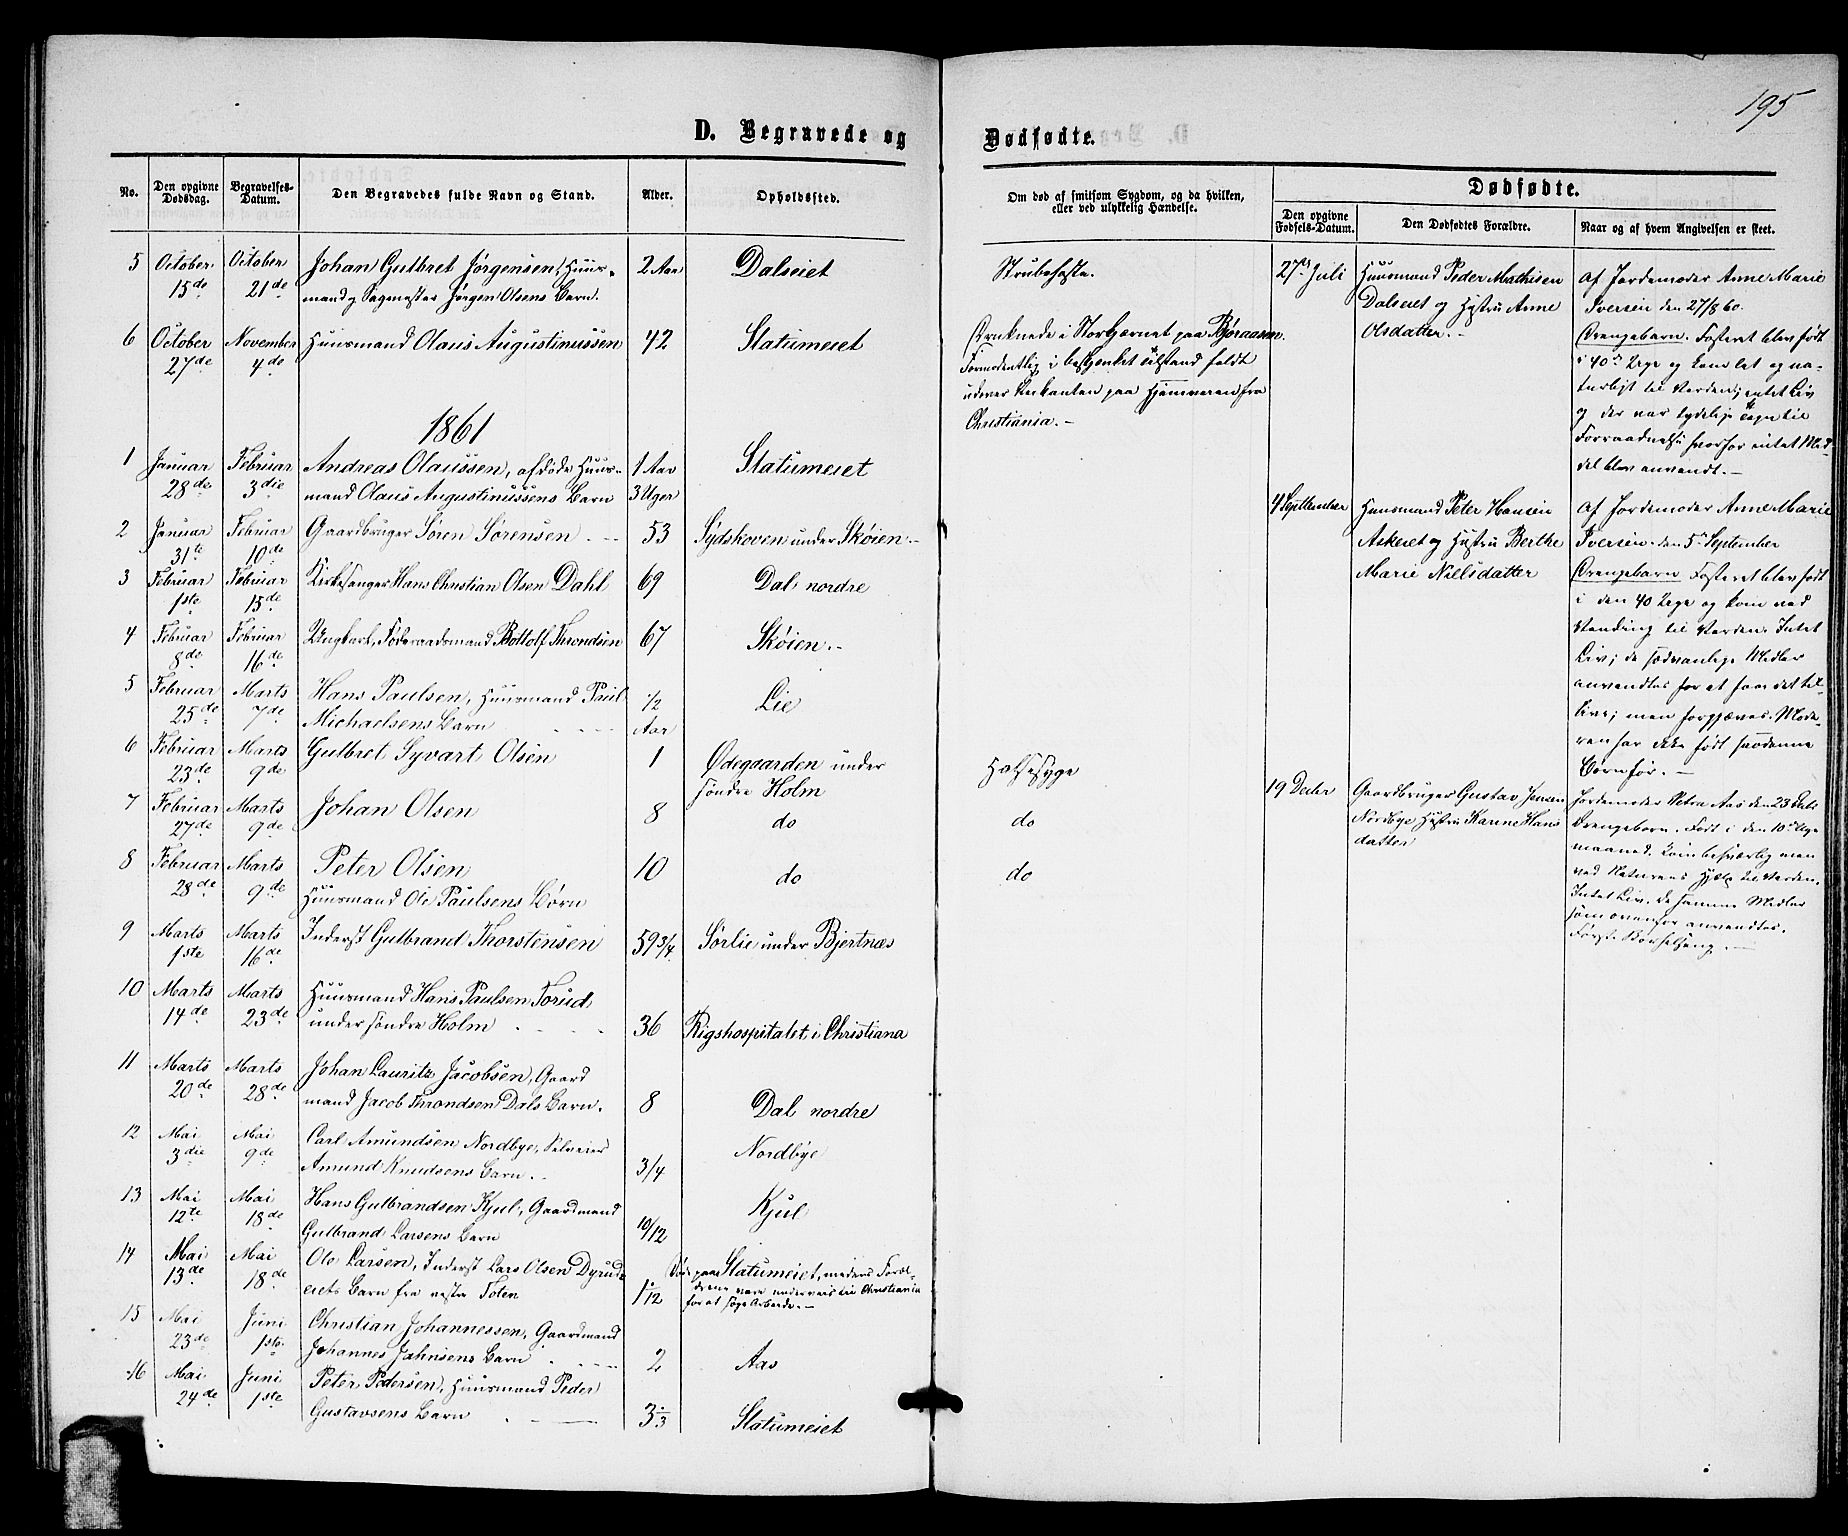 195
D. Begravede og Dødfødte.
No. Den opgivne Dødsdag. Begravelses-Datum. Den Begravedes fulde Navn og Stand. Alder. Opholdssted.
Om død af smitsom Sygdom, og da hvilken, eller ved ulykkelig Hændelse.
Dødfødte.
Den opgivne Fødsels-Datum. Den Dødfødtes Forældre. Naar og af hvem Angivelsen er skeet.
5 October October Johan Gulbret Jørgensen, Huus- 2 Aar Dalseiet Strubehoste.
15de 21de mand og Sagmester Jørgen Olsens Barn.
6 October November Huusmand Olaus Augustinussen 42 Statumeiet Druknede i Storkjærnet paa Bjøraasen.
27de 4de Formodentlig i beskjenket Tilstand faldt
udover paa Hjemveien fra
Christiania.-
1861
1 Januar Februar Andreas Olaussen, afdøde Huus- 1 Aar Statumeiet
28de 3die mand Olaus Augustinussens Barn 3 Uger
2 Januar Februar Gaardbruger Søren Sørensen 53 Sydskoven under Skøien-
31te 10de
3 Februar Februar Kirkesanger Hans Christian Olsen Dahl 69 Dal nordre
1ste 15de
4 Februar Februar Ungkarl, Føderaadsmand Bottolf Throndsen 67 Skøien.-
8de 16de
5 Februar Marts Hans Paulsen, Huusmand Paul 1/2 Lie
25de 7de Michaelsens Barn Aar
6 Februar Marts Gulbret Syvart Olsen 1 Ødegaarden under Halssyge
23de 9de søndre Holm
7 Februar Marts Johan Olsen 8 do do
27de 9de
8 Februar Marts Peter Olsen 10 do do
28de 9de Huusmand Ole Paulsens Børn
9 Marts Marts Inderst Gulbrand Thorstensen 59 3/4 Sørlie under Bjertnæs
1ste 16de
10 Marts Marts Huusmand Hans Paulsen Torud
14de 23de under søndre Holm 36 Rigshospitalet i Christiana
11 Marts Marts Johan Lauritz Jacobsen, Gaard
20de 28de mand Jacob Throndsen Dals Barn. 8 Dal nordre
12 Mai Mai Carl Amundsen Nordbye, Selveier Nordbye
3die 9de Amund Knudsens Barn 3/4
13 Mai Mai Hans Gulbrandsen Kjul, Gaardmand Kjul
12te 18de Gulbrand Larsens Barn 10/12
14 Mai Mai Ole Larsen, Inderst Lars Olsen Dyrud- Døde paa Statumeiet, medens Foræl-
13de 18de eiets Barn fra vestre Toten 1/12 drene vare underveis til Christiania
for at søge Arbeide.-
15 Mai Juni Christian Johannessen, Gaardmand
23de 1ste Johannes Jahnsens Barn 2 Aas
16 Mai Juni Peter Pedersen, Huusmand Peder
24de 1ste Gustavsens Barn 3 Statumeiet
27de Juli Huusmand Peder Mathisen Af Jordemoder Anne Marie
Dalseiet og Hustru Anne Iversen den 27/8 60.
Olsdatter.- Drengebarn. Fosteret blev født
i 40de Uge og kom let og na-
turligt til Verden; intet Liv
og der var tydelige Tegn til
Forraadnelse hvorfor intet Mid
del blev anvendt.-
4 September Huusmand Peter Hansen Af Jordemoder Anne Marie
Askeiet og Hustru Berthe Iversen den 5te September
Marie Nielsdatter Drengebarn Fosteret blev født
i den 40 Uge og kom ved
Vending til Verden. Intet
Liv; de sædvanlige Midler
anvendtes for at faae det til-
live; men forgjæves. Mode-
ren har ikke født saadanne
Børn før.-
19 Decbr Gaardbruger Gustav Jensen Jordemoder Petra Aas den 23 Debr
Nordbye Hustru Karine Hans Drengebarn. Født i den 10de
datter maaned. Kom besværlig men
ved Naturens Hjælp til Verden.
Intet Liv. De samme Midler
som ovenfor anvendtes.
Første Barselseng.-